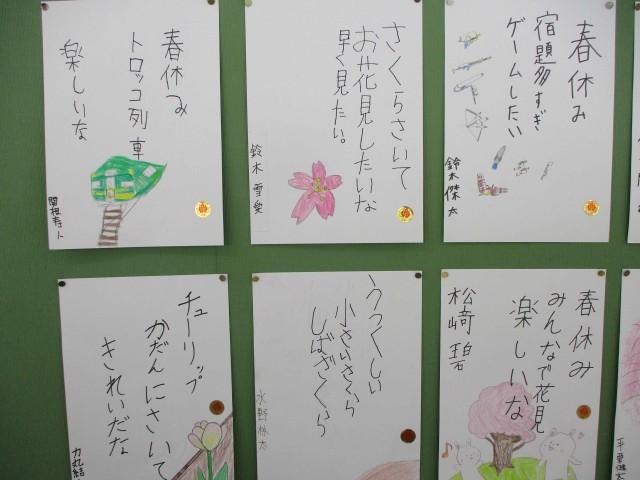 春休み
トロッコ列車
楽しいな
関根寿人
さくらさいて
お花見したいな
早く見たい。
鈴木雪愛
春休み
宿題多すぎ
ゲームしたい
鈴木傑太
チューリップ
かだんにさいて
きれいだな
力丸結
うつくしい
小さいさくら
しばざくら
水野
春休み
みんなで花見
楽しいな
松崎碧